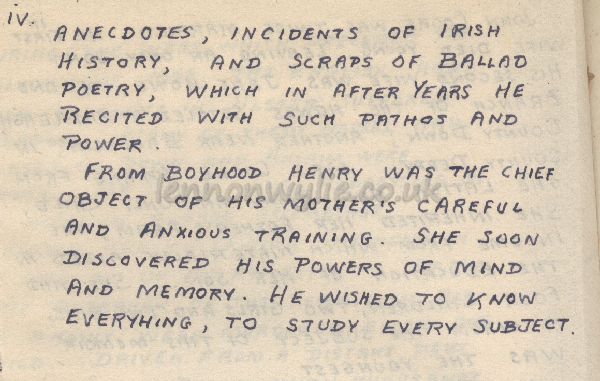 iv.
ANECDOTES, INCIDENTS OF IRISH
HISTORY, AND SCRAPS OF BALLAD
POETRY, WHICH IN AFTER YEARS HE
RECITED WITH SUCH PATHOS AND
POWER.
FROM BOYHOOD HENRY WAS THE CHIEF
lennonwylie.co.uk
OBJECT OF HIS MOTHER'S CAREFUL
AND ANXIOUS TRAINING. SHE SOON
DISCOVERED HIS POWERS OF MIND
AND MEMORY. HE WISHED TO KNOW
EVERYHING, TO STUDY EVERY SUBJECT.